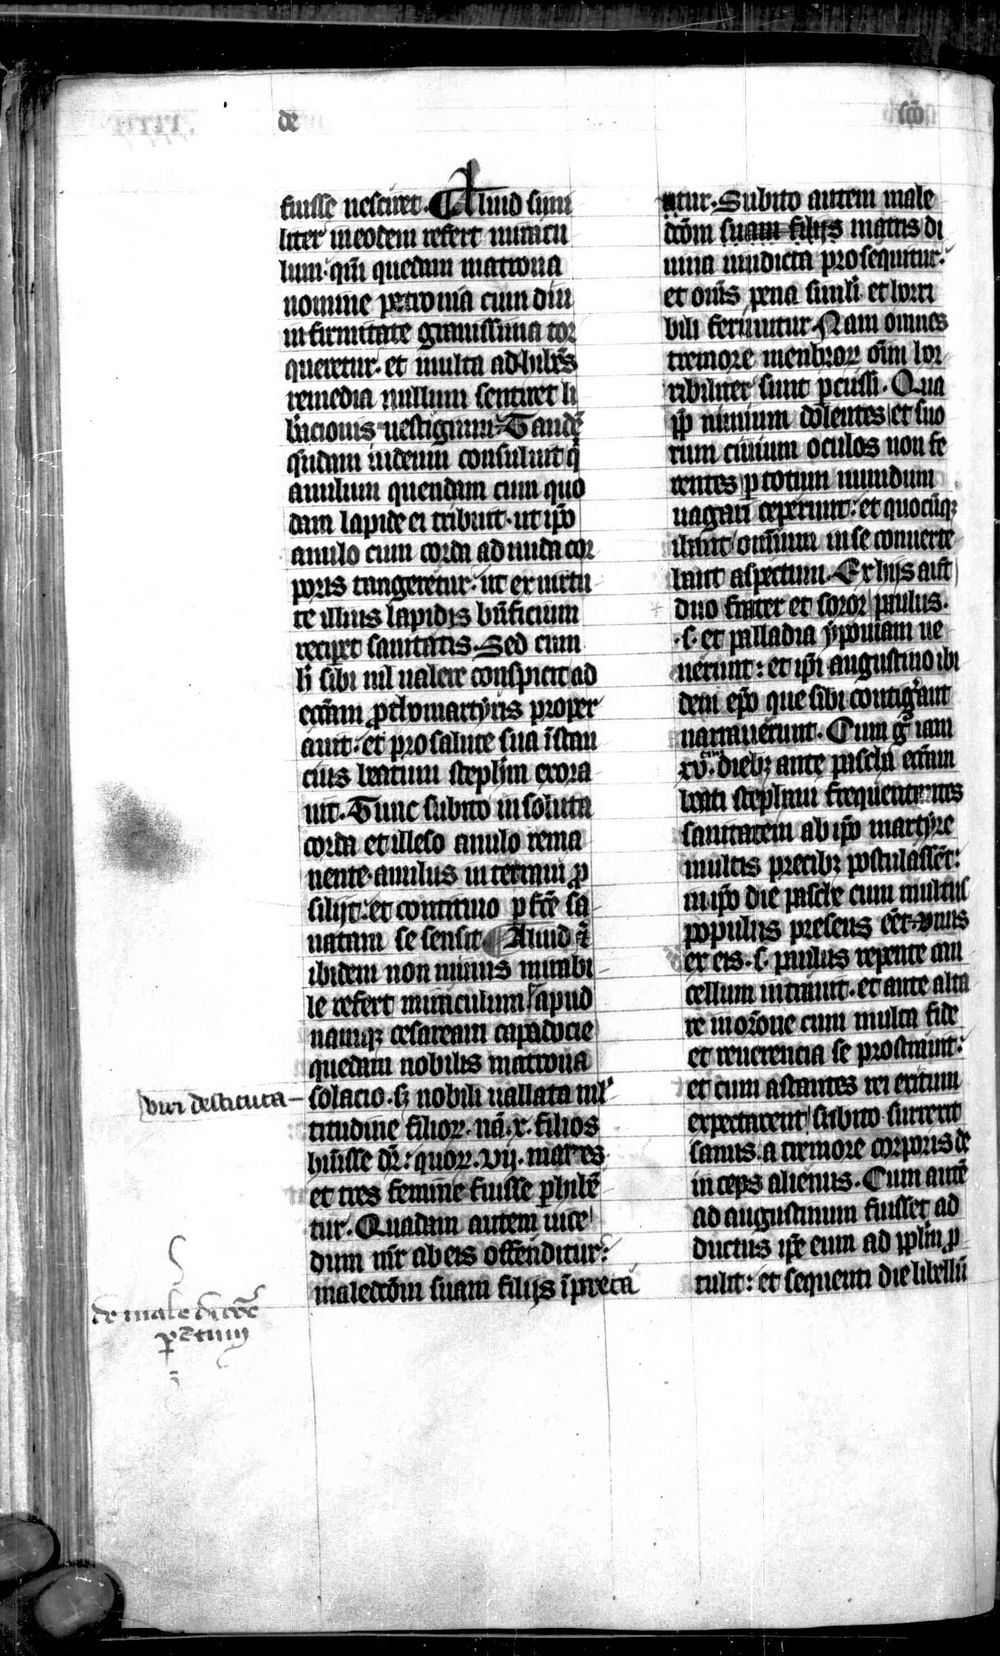 de
sco
fuisse nesciret. Aliud simi
liter in eodem refert miracu
lum. qm̄ quedam matrona
nomine petronia cum diu
infirmitate grauissima tor
queretur. et multa adhibēs
remedia nullum sentiret li
b̄acionis uestigium. Tandē
quēdam iudeum consuluit q̄
anulum quendam cum quo
dam lapide ei tribuit. ut ip̄o
anulo cum corda ad nuda cor
poris tangeretur. ut ex uirtu
te illius lapidis bn̄ficium
reciperet sanitatis. Sed cum
h̄ sibi nil ualere conspicit ad
ecc̄am ꝓthomartyris proper
auit. et pro salute sua īstan
cius beatum steph̄m exora
uit. Tunc subito insoluta
corda et illeso anulo rema
nente. anulus in terram ꝓ
silijt. et continuo ꝑfc̄e sa
natam se sensit. Aliud ꝫ
ibidem non minus mirabi
le refert miraculum. apud
namqꝫ cesaream capadocie
quedam nobilis matrona
viri destituta
solacio. sꝫ nobili uallata ml̓
titudine filioꝝ. nā. x. filios
hūisse dr̄. quoꝝ. vij. mares
et tres femine fuisse ꝑhibē
tur. Quadam autem uice
dum mr̄ ab eis offenditur.
maledcōm suam filijs īpreca
de maledictōe
parentum
utur. Subito autem male
dcōm suam filijs matris di
uina uindicta prosequitur.
et om̄s pena simili et horri
bili feriuntur. Nam omnes
tremore menbroꝝ oīm hor
ribiliter sunt ꝑcussi. Qua
ꝓp̄ nimium dolentes et suo
rum ciuium oculos non fe
rentes ꝑ totum mundum
uagari ceperunt. et quocūqꝫ
ibant omnium in se conuerte
bant aspectum. Ex hijs aūt
duo frater et soror paulus.
.s. et palladia yponiam ue
nerunt: et ip̄i augustino ibi
dem ep̄o que sibi contig̓ant
narrauerunt. Cum g̊ iam
xv. diebꝫ ante pascha ecc̄am
beati stephani frequentantes
sanitatem ab ip̄o martyre
multis precibꝫ postulassēt:
in ip̄o die pasche cum multus
populus presens eēt. vnus
ex eis. s. paulus repente can
cellum intrauit. et ante alta
re in or̄one cum multa fide
et reuerencia se prostrauit.
et cum astantes rei exitum
expectarent subito surrexit
sanus. a tremore corporis de
inceps alienus. Cum autē
ad augustinum fuisset ad
ductus ip̄e eum ad pp̄lm ꝓ
tulit: et sequenti die libellū